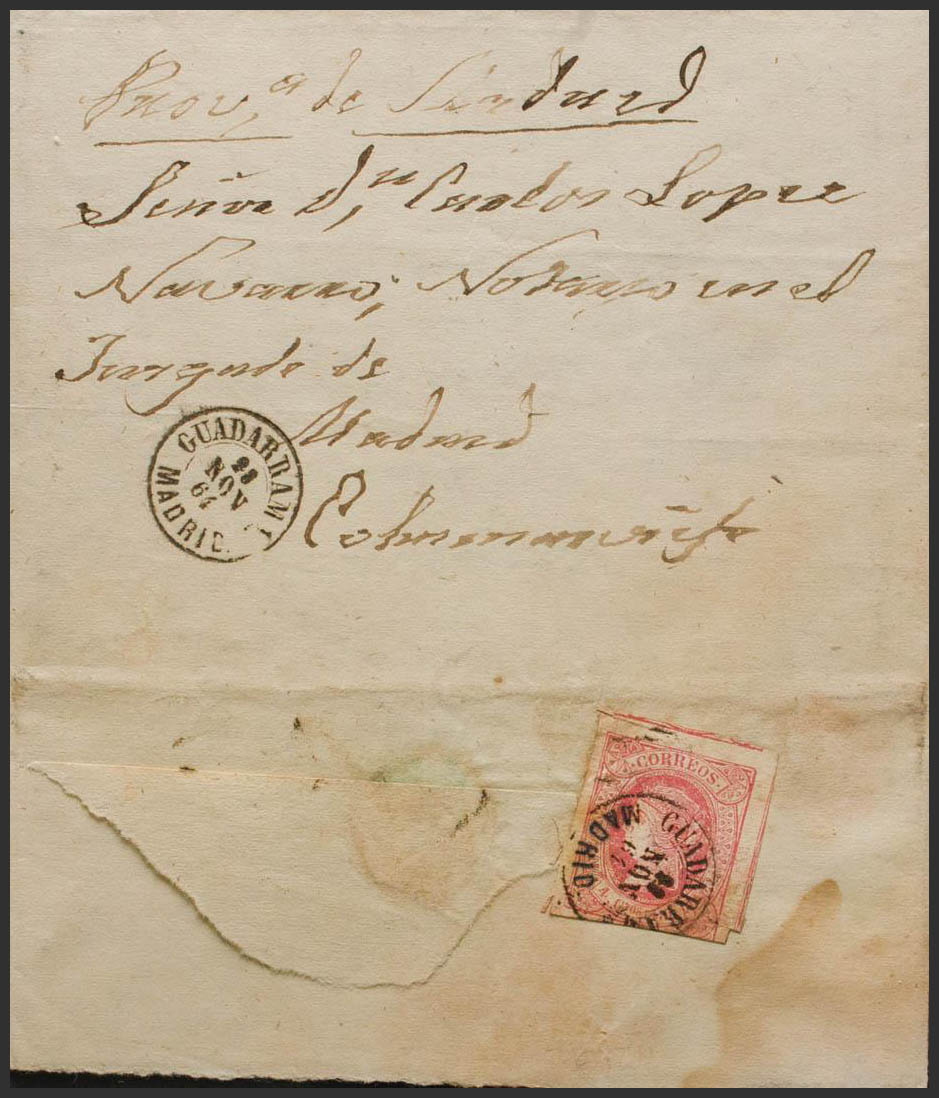 Prov,ª de
Señor D,ⁿ Carlos Lopez
Navarro, Notario en el
Juzgado de
Madrid
GUADARRAMA
NOV
64
MADRID
CORREOS
GUADARRAMA
NOV
MADRID